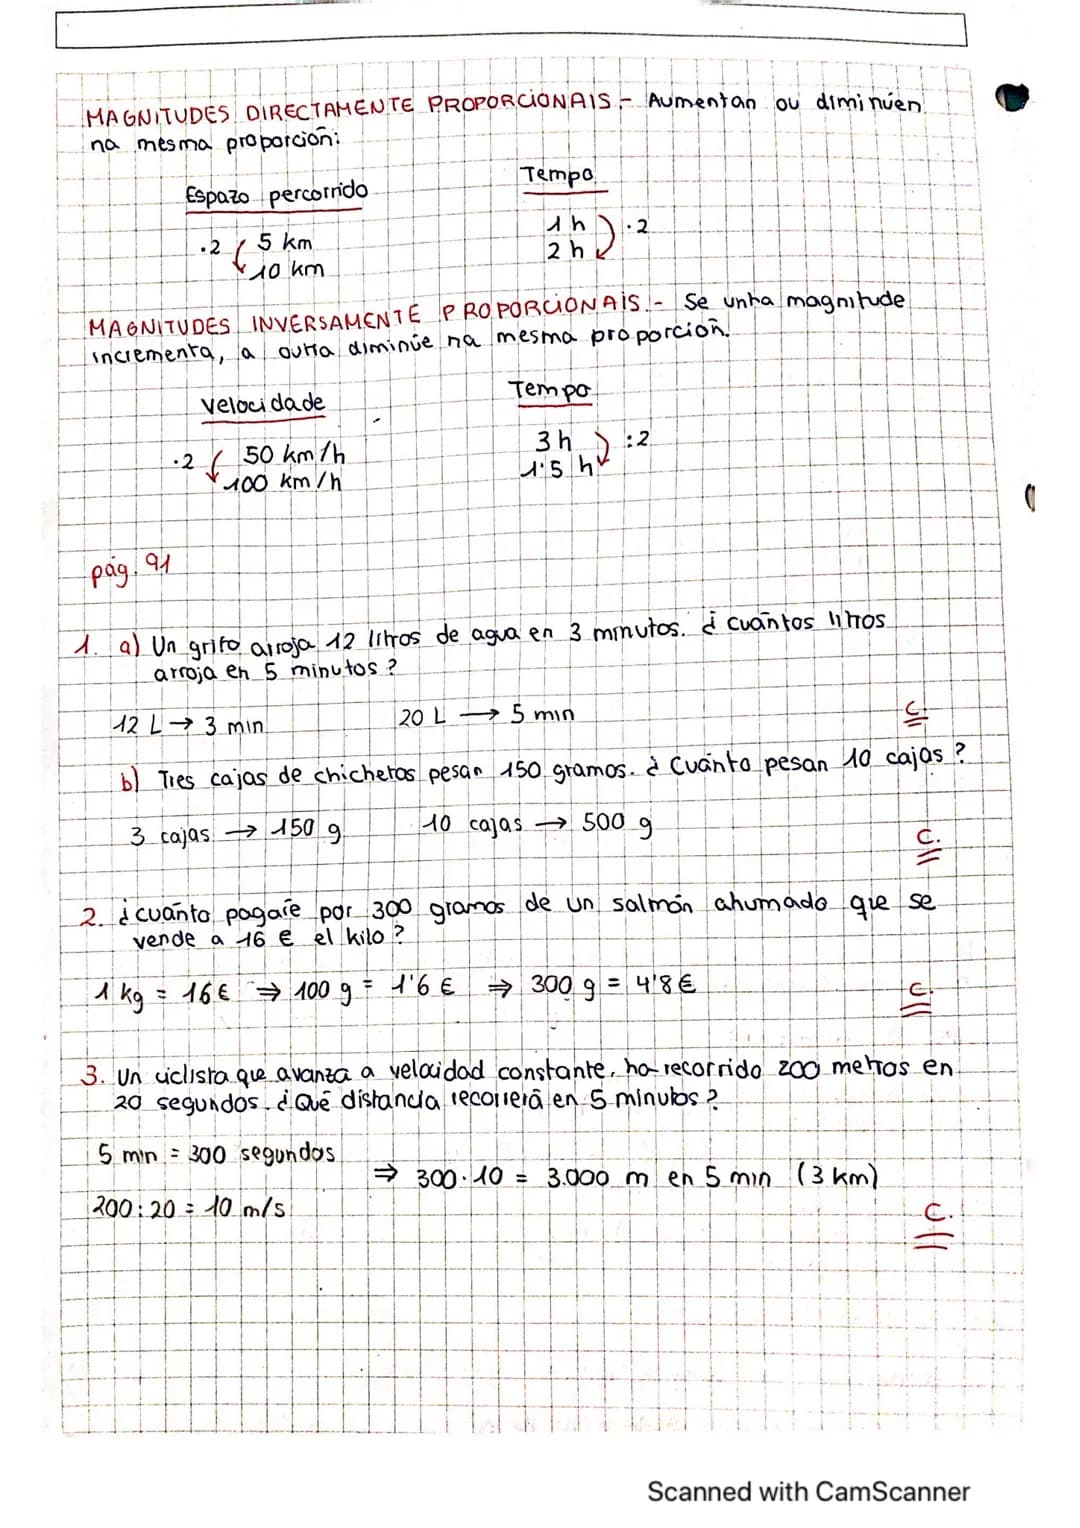 MAGNITUDES DIRECTAMENTE PROPORCIONAIS.- Aumentan ou diminúen
na mesma proporción:
Espazo percorrido Tempo
·2 5 km 1 h ·2
10 km 2 h
MAGNITUDES INVERSAMENTE PROPORCIONAIS.- Se unha magnitude
incrementa, a outra diminúe na mesma proporción.
Velocidade Tempo
·2 50 km/h 3 h :2
100 km/h 1'5 h
pág. 91
1. a) Un grifo arroja 12 litros de agua en 3 minutos. ¿cuántos litros
arroja en 5 minutos?
12 L → 3 min 20 L → 5 min C.
b) Tres cajas de chicheros pesan 150 gramos. ¿Cuánto pesan 10 cajas?
3 cajas → 150 g 10 cajas → 500 g C.
2. ¿cuánto pagaré por 300 gramos de un salmón ahumado que se
vende a 16 € el kilo?
1 kg = 16€ ⇒ 100 g = 1'6 € ⇒ 300 g = 4'8€ C.
3. Un ciclista que avanza a velocidad constante, ha recorrido 200 metros en
20 segundos. ¿Qué distancia recorrerá en 5 minutos?
5 min = 300 segundos
⇒ 300·10 = 3.000 m en 5 min (3 km)
200:20 = 10 m/s C.
Scanned with CamScanner